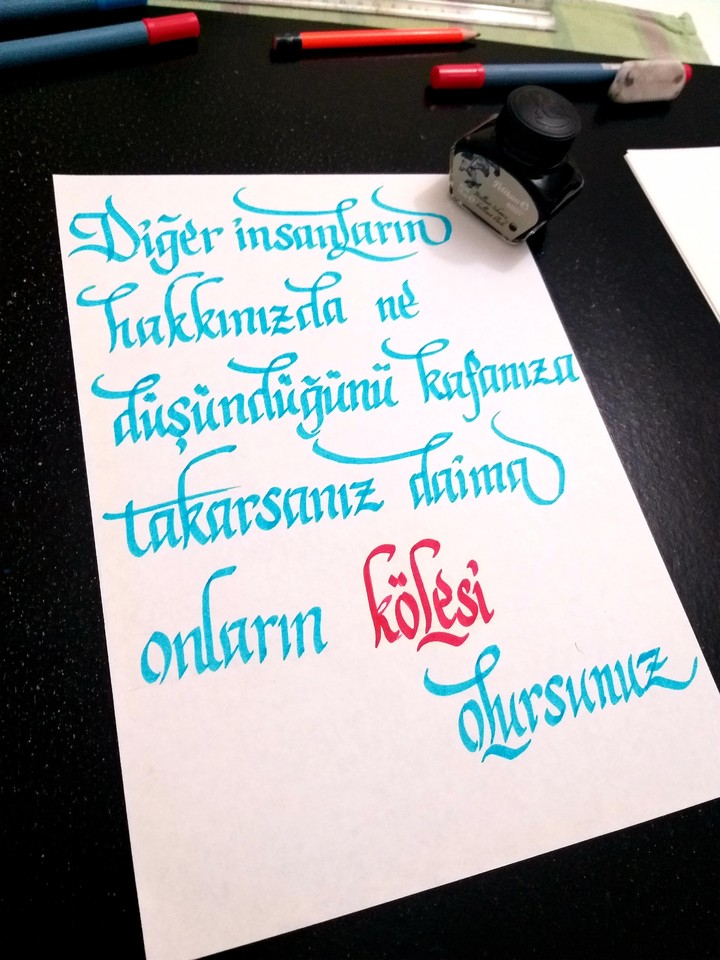 Diğer insanların
hakkınızda ne
düşündüğünü kafanıza
takarsanız daima
onların kölesi
olursunuz